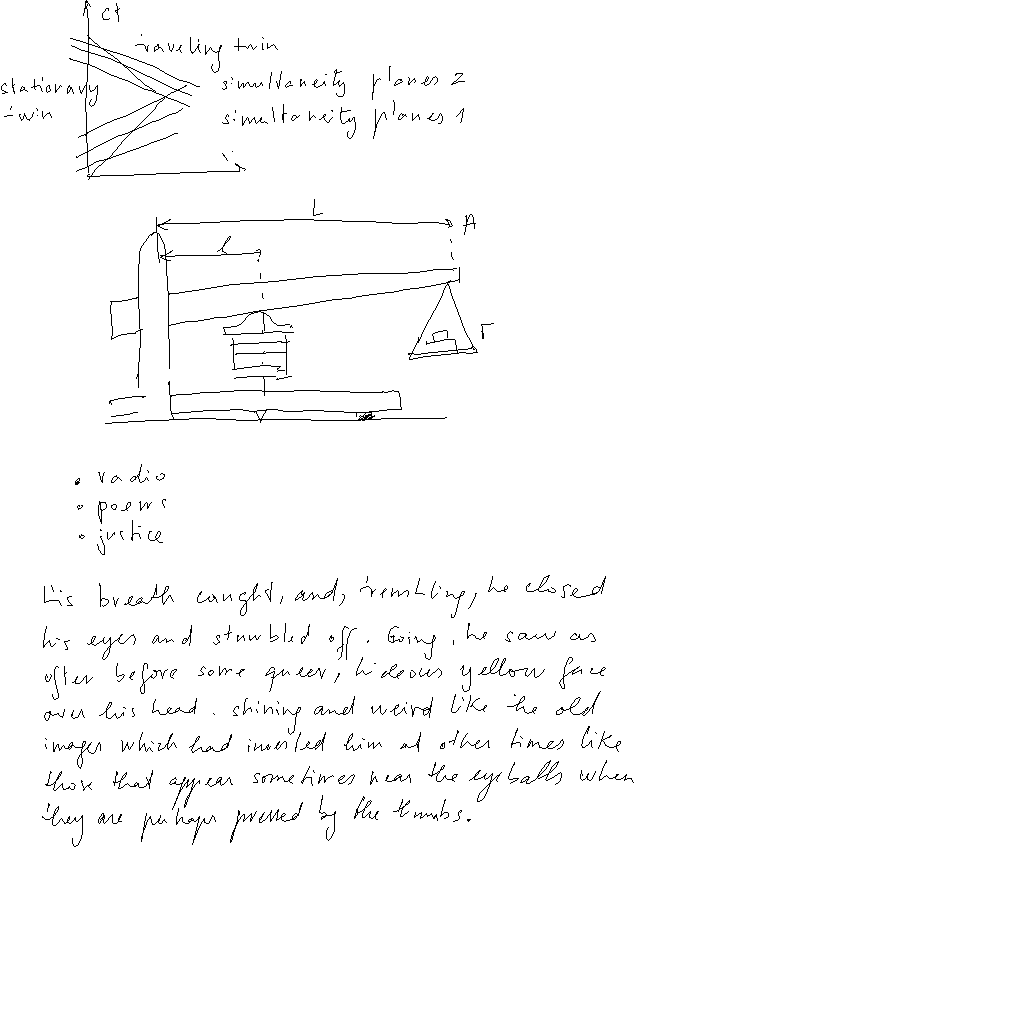 ct
traveling twin
stationary
twin
simultaneity planes 2
simultaneity planes 1
L
A
l
F
• radio
• poems
• justice
His breath caught, and, trembling, he closed
his eyes and stumbled off. Going, he saw as
often before some queer, hideous yellow face
over his head. shining and weird like the old
images which had invested him at other times like
those that appear sometimes near the eyeballs when
they are perhaps pressed by the thumbs.